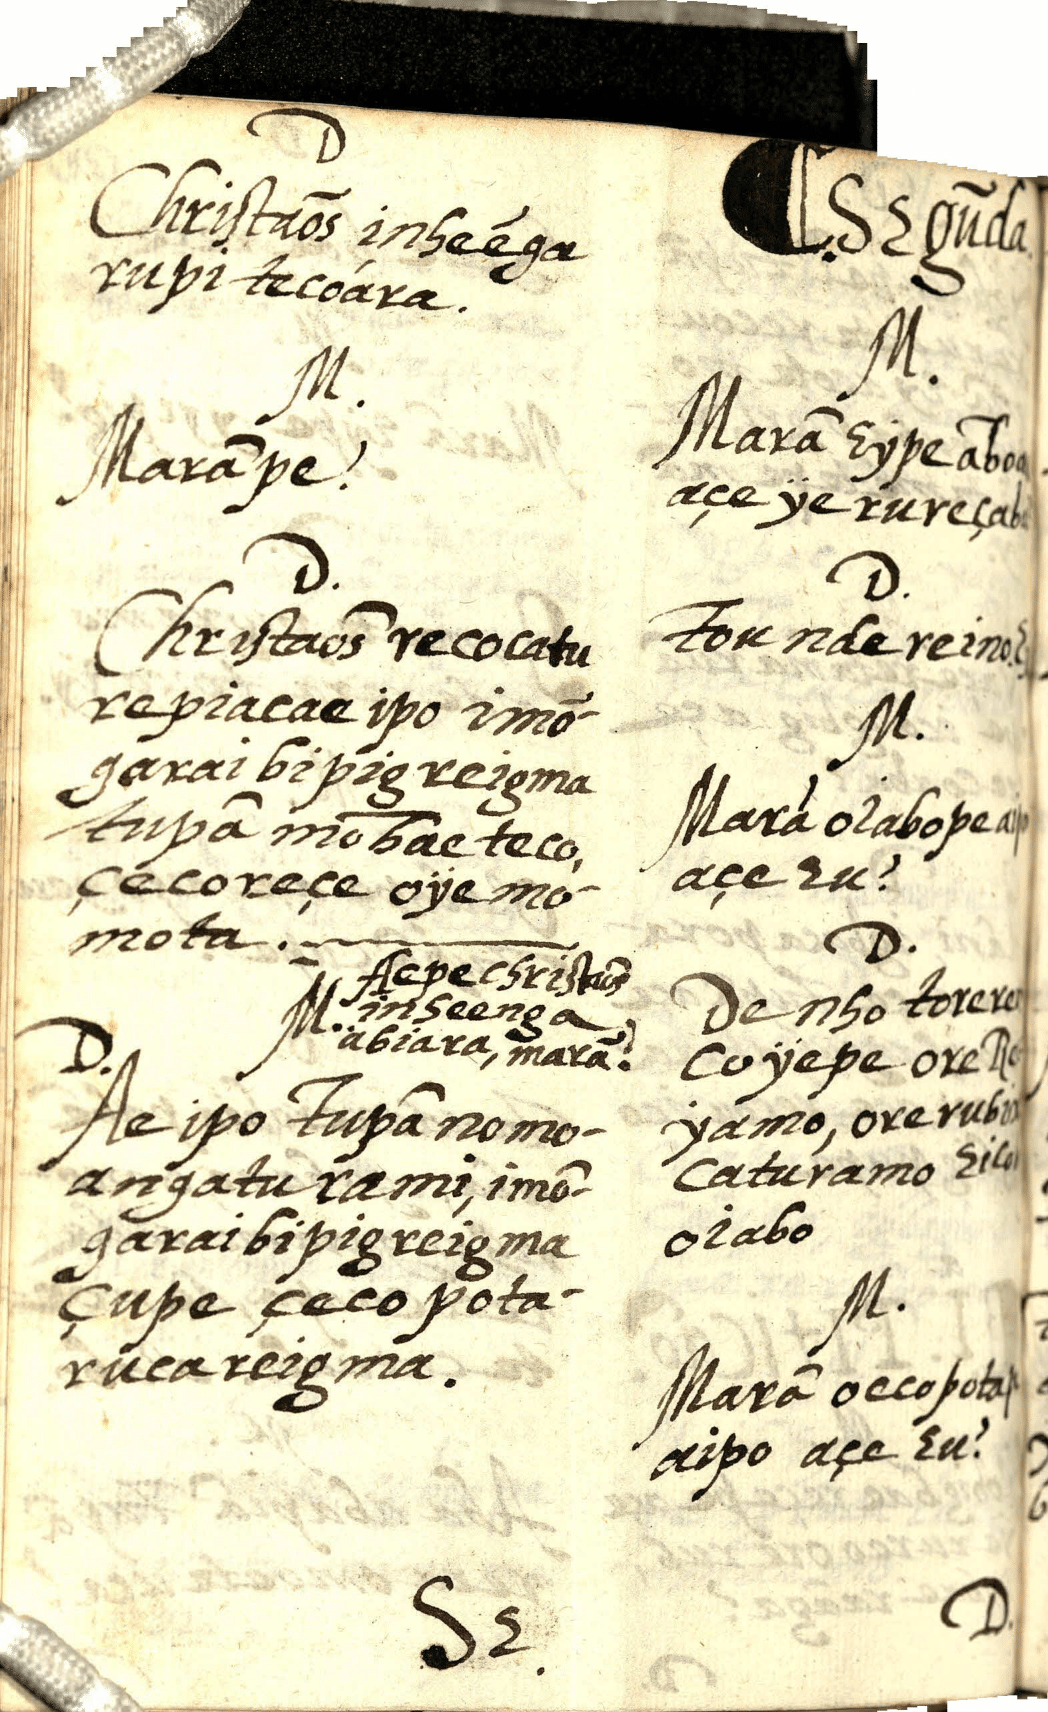 D
Christaõs inheéga
rupi tecoára.
M.
Marãpe?
D.
Christaõs recocatu
repiacae ipo imõ-
garaibipigreigma
tupã mohae teco,
çecoreçe oÿe mo-
mota.
M. Aepe christaõs
inheenga
abiara, marã?
D.
Ae ipo Tupã nomo-
angaturami, imõ-
garaibipigreigma
çupe çeco pota-
rucareigma.
Se.
Segũda
M.
Marã eÿpe
açe ÿe
D.
Tou nde reino.
M.
Marã oiabope
açe eu?
D.
De nho
co ÿepe ore
yamo,
caturamo
oiabo
M.
Marã
aipo açe eu?
D.